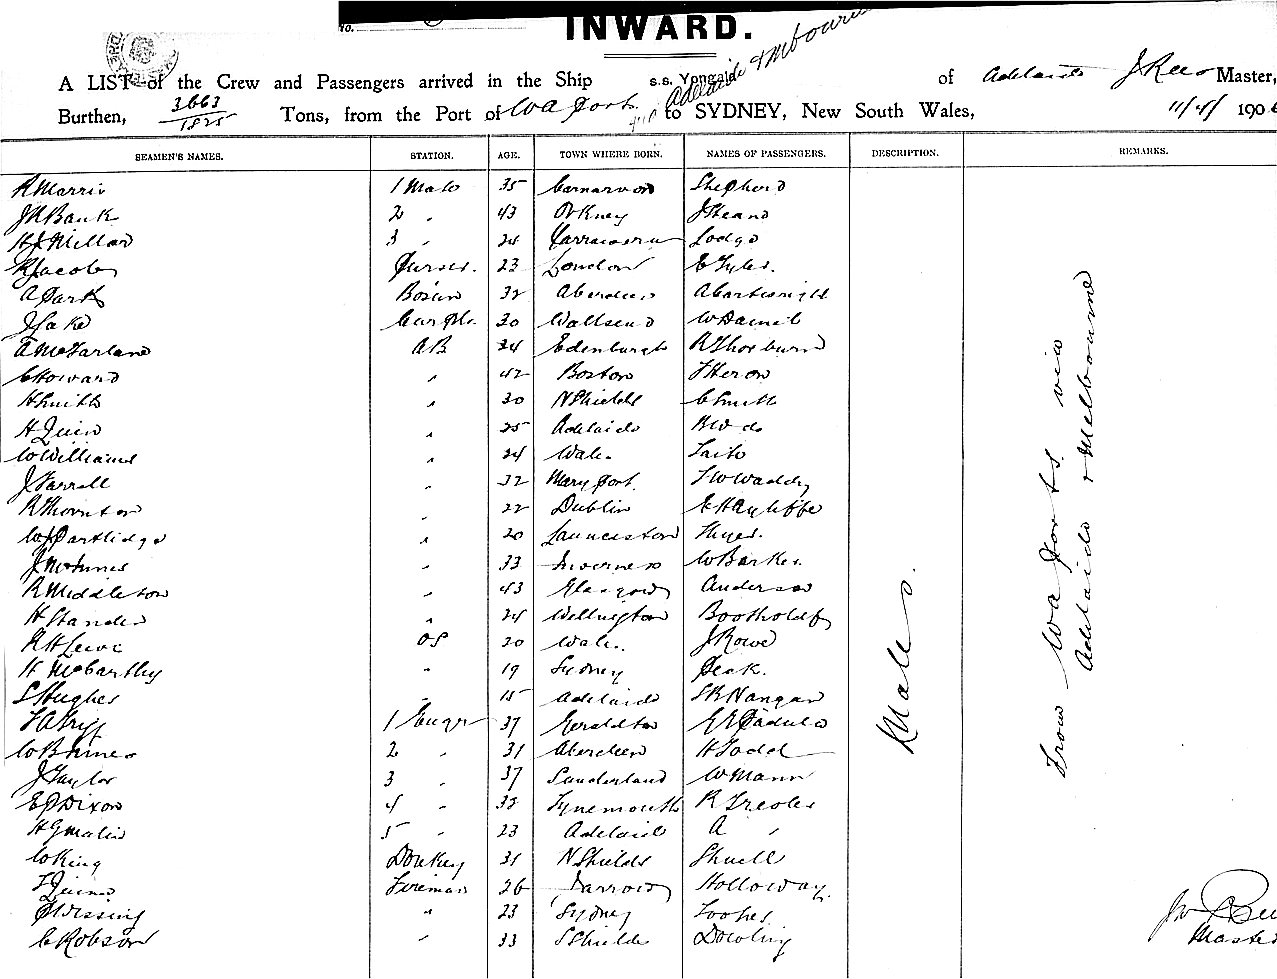 No.
INWARD.
A LIST of the Crew and Passengers arrived in the Ship s.s. Yongala of Adelaide J Rees Master,
Adelaide & Melbourne
Burthen, 3663/1825 Tons, from the Port of WA Ports to SYDNEY, New South Wales, 11/4/ 190
SEAMEN'S NAMES. STATION. AGE. TOWN WHERE BORN. NAMES OF PASSENGERS. DESCRIPTION. REMARKS.
R Marris 1 Mate 35 Carnarvon Shepherd
J R Bank 2 " 43 Orkney J Heand
H J Millar 3 " 24 Lodge
R Jacobs Purser. 23 London E Tyles.
A Park Bosun 32 Aberdeen A Cartwright
J Lake Carptr. 30 Wallsend W Daniel
A McFarland AB 34 Edinburgh R Thorburn
C Howard " 42 Boston T Heron
H Smith " 30 N Shields C Smith
H Quin " 25 Adelaide
W Williams " 24 Wales Taito
J Farrell " 32 Maryport. F W Waddy
R Thornton " 22 Dublin
W J Partlidge " 20 Launceston Hyes.
J McInnes " 33 Inverness W Barker.
R Middleton " 43 Glasgow Anderson
H Stander " 24 Wellington
R H Lewe OS 20 Wales. J Rowe
H McCarthy " 19 Sydney Peak.
S Hughes " 15 Adelaide S R Nangan
1 Engr 37 Geraldton
W B Innes 2 " 31 Aberdeen H Todd
J Taylor 3 " 37 Sunderland W Mann
E P Dixon 4 " 32 Tynemouth R Treoler
H G Malin 5 " 23 Adelaide A "
W King Donkey 31 N Shields Shuell
T Quinn Fireman 26 Jarrow Holloway.
P Wissing " 23 Sydney Looker
C Robson " 33 S Shields Dowling
Males.
From WA Ports via
Adelaide & Melbourne
Jno Rees
Master